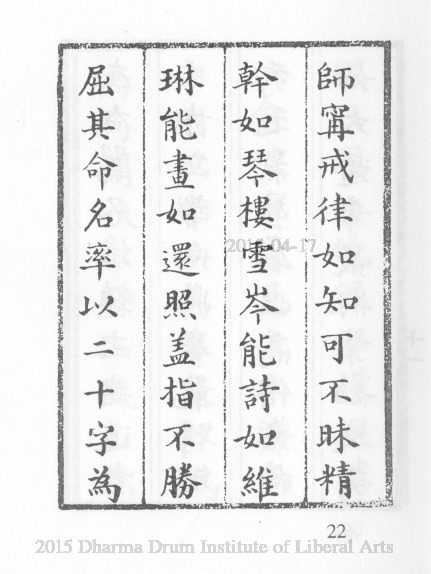 師寗戒律如知可不昧精
幹如琴樓雪岑能詩如維
琳能畫如還照盖指不勝
屈其命名率以二十字為
22
2015 Dharma Drum Institute of Liberal Arts